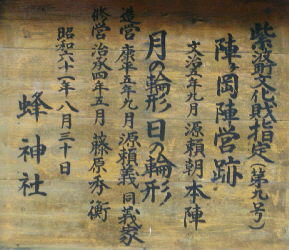 紫波町文化財指定(第九号)
陣ヶ岡陣営跡
文治五年九月 源頼朝本陣
月の輪形 日の輪形
造営 康平五年九月 源頼義 同義家
修営 治承四年五月 藤原秀衡
昭和六十一年 八月三十日
蜂神社